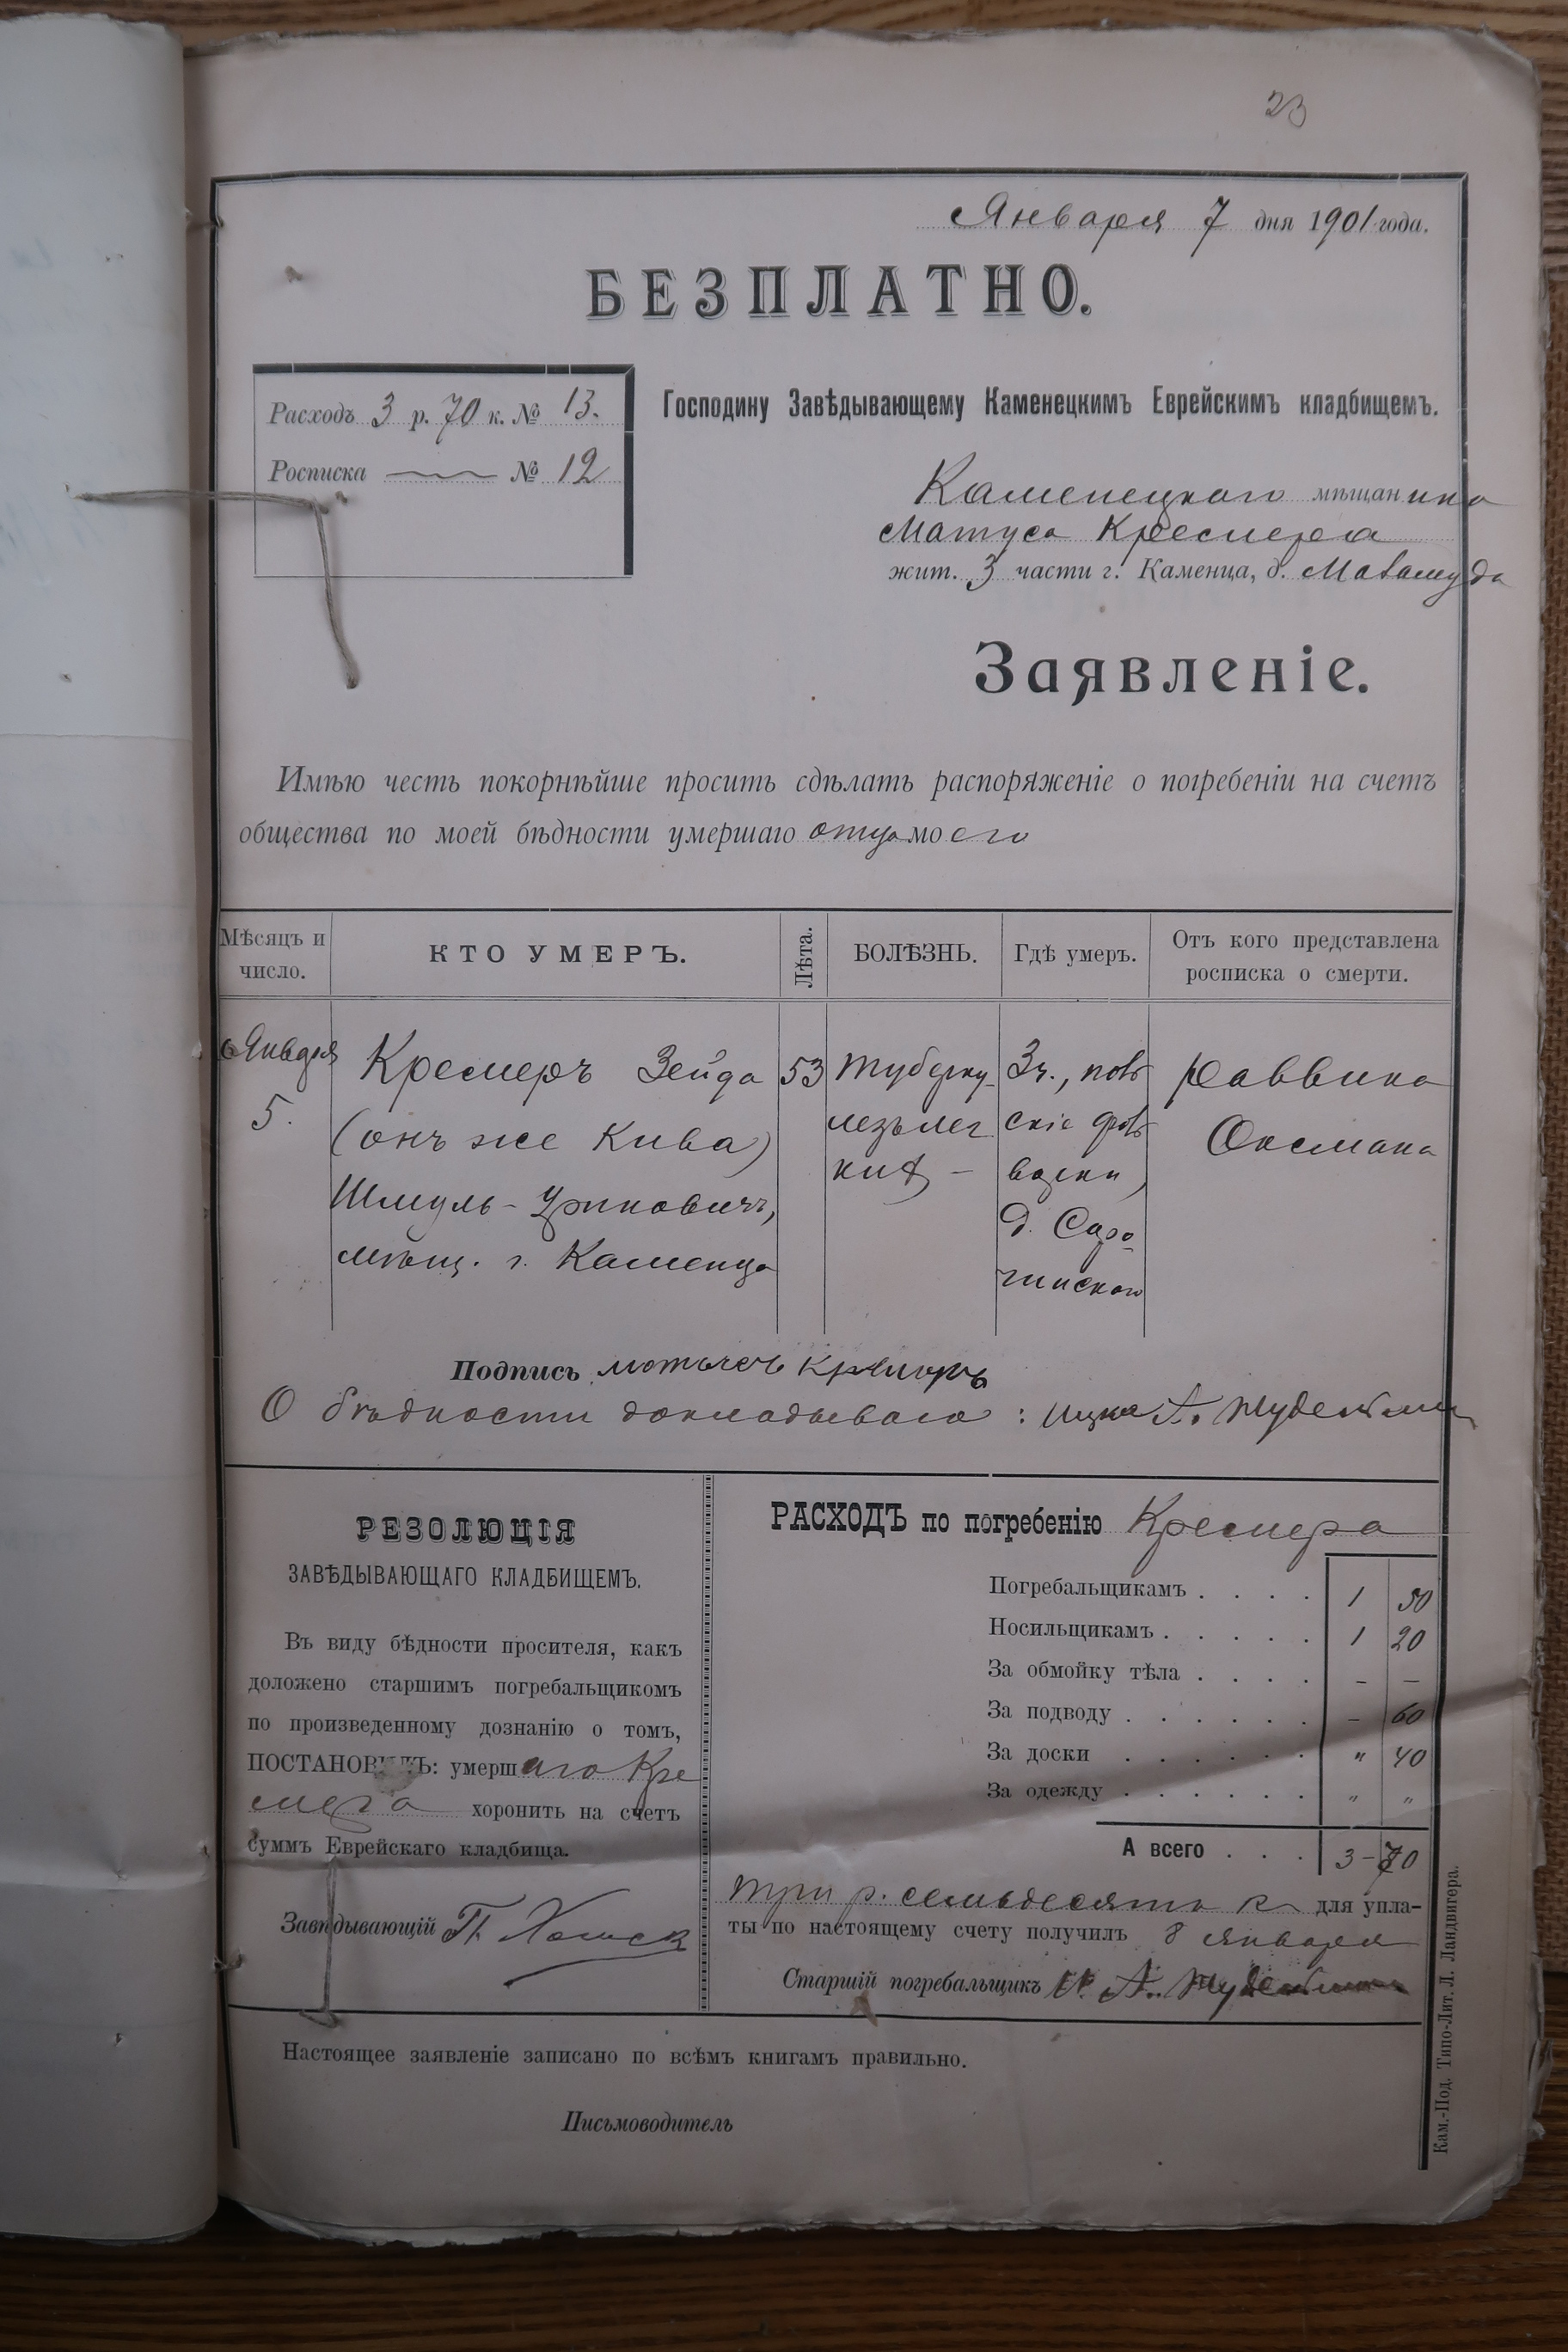 23
Января 7 дня 1901 года.
БЕЗПЛАТНО.
Расходъ 3 р. 70 к. № 13.
Росписка № 12
Господину Завѣдывающему Каменецкимъ Еврейскимъ кладбищемъ.
Каменецкаго мѣщанина
Матуса Кремера
жит. 3 части г. Каменца, д.
Заявленіе.
Имѣю честь покорнѣйше просить сдѣлать распоряженіе о погребеніи на счетъ
общества по моей бѣдности умершаго отца моего
Мѣсяцъ и число.
КТО УМЕРЪ.
Лѣта.
БОЛѢЗНЬ.
Гдѣ умеръ.
Отъ кого представлена росписка о смерти.
Января
5.
Кремеръ Зейда
(онъ же Кива)
Шмуль-
мѣщ. г. Каменца
53
туберку
лезъ лег
кихъ -
3 ч.,
д. Саро
чинскаго
Раввина
Оксмана
Подпись Кремеръ
О бѣдности докладываю: Ицко А.
РЕЗОЛЮЦІЯ
ЗАВѢДЫВАЮЩАГО КЛАДБИЩЕМЪ.
Въ виду бѣдности просителя, какъ
доложено старшимъ погребальщикомъ
по произведенному дознанію о томъ,
ПОСТАНОВИЛЪ: умершаго Кре
мера хоронить на счетъ
суммъ Еврейскаго кладбища.
Завѣдывающій
РАСХОДЪ по погребенію Кремера
Погребальщикамъ . . . . 1 50
Носильщикамъ . . . . . 1 20
За обмойку тѣла . . . . – –
За подводу . . . . . . – 60
За доски . . . . . . " 40
За одежду . . . . . . " "
А всего . . . 3 – 70
три р. семьдесятъ к для упла-
ты по настоящему счету получилъ 8 января
Старшій погребальщикъ И. А.
Настоящее заявленіе записано по всѣмъ книгамъ правильно.
Письмоводитель
Кам.-Под. Типо-Лит. Л. Ландвигера.